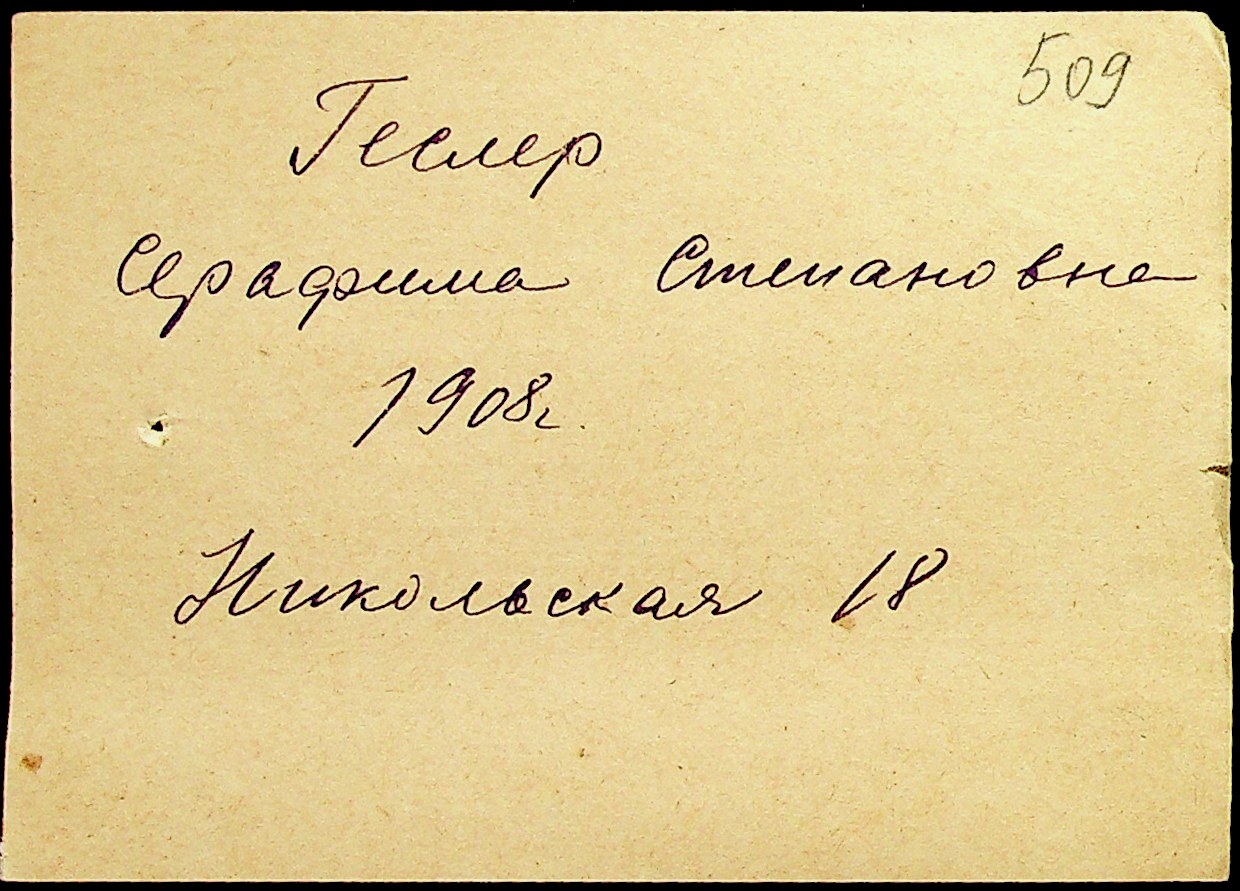 509
Геслер
Серафима Степановна
1908г.
Никольская 18